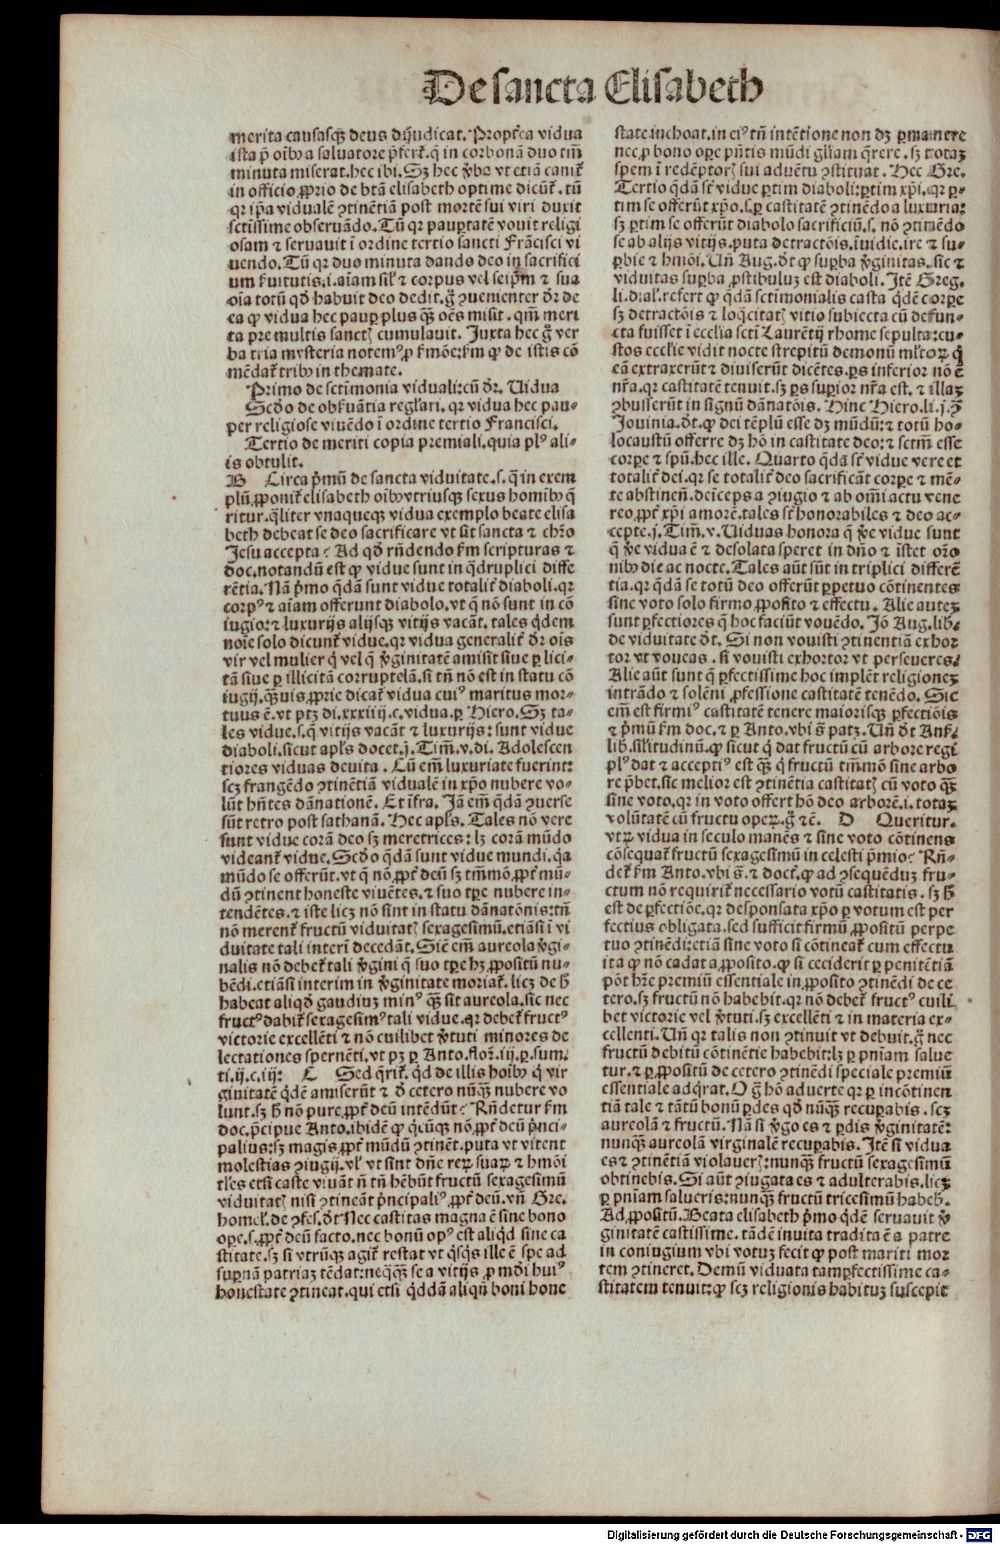 De sancta Elisabeth
merita causasq; deus dijudicat. Propt̃ea vidua
ista p̃ oĩbꝰ a saluatore p̃fert̃. q̃ in corbonã duo tm̃
minuta miserat. hec ibi. Sʒ hec ꝟba vt etiã canit̃
in officio ꝓprio de btã elisabeth optime dicũt̃. tũ
qꝛ ip̃a vidualẽ ꝯtinẽtiã post mortẽ sui viri duxit
sctissime obseruãdo. Tũ qꝛ pauꝑtatẽ vouit religi
osam ⁊ seruauit ĩ ordine tertio sancti Frãcisci vi
uendo. Tũ qꝛ duo minuta dando deo in sacrifici
um ẜuitutis. i. aĩam sil̃ ⁊ corpus vel seip̃m ⁊ sua
oĩa totũ qđ habuit deo dedit. g̃ ꝯuenienter dr̃ de
ea ꝙ vidua hec pauꝑ plus q̃ʒ oẽs misit. qm̃ meri
ta pre multis sanctꝭ cumulauit. Juxta hec g̃ ver
ba tria mysteria notemꝰ ꝓ ẜmõe: ẜm ꝙ de istis cõ
mẽdat̃ tribꝰ in themate.
Primo de sctĩmonia viduali: cũ dr̃. Vidua
Scđo de obẜuãtia regl̃ari. qꝛ vidua hec pau-
per religiose viuẽdo ĩ ordine tertio Francisci.
Tertio de meriti copia premiali. quia plꝰ ali-
is obtulit.
B Circa p̃mũ de sancta viduitate. s. q̃ in exem
plũ ꝓponit̃ elisabeth oĩbꝰ vtriusq; sexus homĩbꝰ q̃
ritur. q̃liter vnaqueq; vidua exemplo beate elisa
beth debeat se deo sacrificare vt sit sancta ⁊ chr̃o
Jesu accepta? Ad qđ rñdendo ẜm scripturas ⁊
doc. notandũ est ꝙ vidue sunt in q̃druplici diffe
rẽtia. Nã p̃mo q̃dã sunt vidue totalit̃ diaboli. qꝛ
corpꝰ ⁊ aĩam offerunt diabolo. vt q̃ nõ sunt in cõ
iugio: ⁊ luxurijs alijsq; vitijs vacãt. tales q̃dem
noĩe solo dicunt̃ vidue. qꝛ vidua generalit̃ dr̃ oĩs
vir vel mulier q̃ vel q̃ ꝟginitatẽ amisit siue ꝑ lici-
tã siue ꝑ illicitã corruptelã. si tñ nõ est in statu cõ
iugij. q̃ʒuis ꝓprie dicat̃ vidua cuiꝰ maritus mor-
tuus ẽ. vt ptʒ di. xxxiiij. c. vidua. ꝑ Hiero. Sʒ ta-
les vidue. s. q̃ vitijs vacãt ⁊ luxurijs: sunt vidue
diaboli. sicut apl̃s docet. j. Tim̃. v. di. Adolescen
tiores viduas deuita. Cũ em̃ luxuriate fuerint:
scʒ frangẽdo ꝯtinẽtiã vidualẽ in xp̃o nubere vo-
lũt hñtes dãnationẽ. Et ĩfra. Jã em̃ q̃dã ꝯuerse
sũt retro post sathanã. Hec apl̃s. Tales nõ vere
sunt vidue corã deo sʒ meretrices: lʒ corã mũdo
videant̃ vidue. Scđo q̃dã sunt vidue mundi. q̃a
mũdo se offerũt. vt q̃ nõ ꝓpt̃ deũ sʒ tm̃mõ ꝓpt̃ mũ-
dũ ꝯtinent honeste viuẽtes. ⁊ suo tꝑe nubere in-
tendẽtes. ⁊ iste licʒ nõ sint in statu dãnatõnis: tñ
nõ merent̃ fructũ viduitatꝭ sexagesimũ. etiãsi ĩ vi
duitate tali interĩ decedãt. Sic em̃ aureola ꝟgi-
nalis nõ debet̃ tali ꝟgini q̃ suo tꝑe hʒ ꝓpositũ nu-
bẽdi. etiãsi interim in ꝟginitate moriat̃. licʒ de h̃
habeat aliqđ gaudiuʒ minꝰ q̃ʒ sit aureola. sic nec
fructꝰ dabit̃ sexagesimꝰ tali vidue. qꝛ debet̃ fructꝰ
victorie excellẽti ⁊ nõ cuilibet ꝟtuti minores de
lectationes spernẽti. vt pʒ ꝑ Anto. florẽ. iij. p. sum.
ti. ij. c. iij: C Sed q̃rit̃. qd de illis hoĩbꝰ q̃ vir
ginitatẽ q̃dẽ amiserũt ⁊ đ cetero nũq̃ʒ nubere vo
lunt. sʒ h̃ nõ pure ꝓpt̃ deũ intẽdũt? Rñdetur ẜm
doc. p̃cipue Anto. ibidẽ ꝙ q̃cũq; nõ ꝓpt̃ deũ p̃nci-
palius: sʒ magis ꝓpt̃ mũdũ ꝯtinẽt. puta vt vitent
molestias ꝯiugij. vl̃ vt sint dñe reꝝ suaꝝ ⁊ hm̃õi
tl̃es etsi caste viuãt ñ tñ hẽbũt fructũ sexagesimũ
viduitatꝭ nisi ꝯtineãt p̃ncipaliꝰ ꝓpt̃ deũ. vñ Gre.
homel̃. de ꝯfes. đt Nec castitas magna ẽ sine bono
oꝑe. s. ꝓpt̃ deũ facto. nec bonũ opꝰ est aliqđ sine ca
stitate. sʒ si vtrũq; agit̃ restat vt q̃sq̃s ille ẽ spe ad
suꝑnã patriaʒ tẽdat: neq̃q̃ʒ se a vitijs ꝓ mũdi huiꝰ
honestate ꝯtineat. qui etsi q̃ddã aliqñ boni hone
state inchoat. in eiꝰ tñ intẽtione non dʒ ꝑmanere
nec ꝓ bono oꝑe p̃ntis mũdi gl̃iam q̃rere. sʒ totaʒ
spem ĩ redẽptorꝭ sui aduẽtu ꝯstituat. Hec Gre.
Tertio q̃dã sũt vidue ꝑtim diaboli: ꝑtim xp̃i. qꝛ ꝑ-
tim se offerũt xp̃o. s. ꝑ castitatẽ ꝯtinẽdo a luxuria:
sʒ ꝑtim se offerũt diabolo sacrificiũ. s. nõ ꝯtinẽdo
se ab alijs vitijs. puta detractõis. ĩuidie. ire ⁊ su-
ꝑbie ⁊ hm̃õi. Vñ Aug. đt ꝙ suꝑba ꝟginitas. sic ⁊
viduitas suꝑba ꝓstibuluʒ est diaboli. Itẽ Greg.
li. dial. refert ꝙ q̃dã sctĩmonialis casta q̃dẽ corꝑe
sʒ detractõis ⁊ loq̃citatꝭ vitio subiecta cũ defun-
cta fuisset ĩ ecclĩa scti Laurẽtij rhome sepulta: cu-
stos ecclie vidit nocte strepitũ demonũ ml̃toꝝ q̃
eã extraxerũt ⁊ diuiserũt dicẽtes. ꝑs inferior nõ ẽ
nr̃a. qꝛ castitatẽ tenuit. sʒ ꝑs suꝑior nr̃a est. ⁊ illaʒ
ꝯbusserũt in signũ dãnatõis. Hinc Hiero. li. j. ꝯ̃
Jouinia. đt. ꝙ dei tẽplũ esse dʒ mũdũ: ⁊ totũ ho-
locaustũ offerre dʒ hõ in castitate deo: ⁊ sctm̃ esse
corꝑe ⁊ spũ. hec ille. Quarto q̃dã sũt vidue vere et
totalit̃ dei. qꝛ se totalit̃ deo sacrificãt corꝑe ⁊ mẽ-
te abstinen̄. deĩceps a ꝯiugio ⁊ ab om̃i actu vene
reo ꝓpt̃ xp̃i amorẽ. tales sũt honorabiles ⁊ deo ac-
cepte. j. Tim̃. v. Viduas honora q̃ ꝟe vidue sunt
q̃ ꝟe vidua ẽ ⁊ desolata speret in dño ⁊ ĩstet orõ
nibꝰ die ac nocte. Tales aũt sũt in triplici differẽ
tia. qꝛ q̃dã se totũ deo offerũt ꝑpetuo cõtinentes
sine voto solo firmo ꝓposito ⁊ effectu. Alie auteʒ
sunt ꝑfectiores q̃ hoc faciũt vouẽdo. Jõ Aug. lib.
de viduitate đt. Si non vouisti ꝯtinentiã exhor
tor vt voueas. si vouisti exhortor vt perseueres.
Alie aũt sunt q̃ ꝑfectissime hoc implẽt religioneʒ
intrãdo ⁊ solẽni ꝓfessione castitatẽ tenẽdo. Sic
em̃ est firmiꝰ castitatẽ tenere maiorisq; ꝑfectiõis
⁊ p̃miũ ẜm doc. ⁊ ꝑ Anto. vbi s̃. patʒ. Vñ đt Ans̃.
lib. sil̃itudinũ. ꝙ sicut q̃ dat fructũ cũ arbore regi
plꝰ dat ⁊ acceptiꝰ est q̃ʒ q̃ fructũ tm̃mõ sine arbo
re p̃bet. sic melior est ꝯtinẽtia castitatꝭ cũ voto q̃ʒ
sine voto. qꝛ in voto offert hõ deo arborẽ. i. totaʒ
volũtatẽ cũ fructu operꝭ. g̃ ⁊c̃. D Queritur.
vtꝝ vidua in seculo manẽs ⁊ sine voto cõtinens
cõsequat̃ fructũ sexagesimũ in celesti p̃mio? Rñ-
det̃ ẜm Anto. vbi s̃. ⁊ doct̃. ꝙ ad ꝯsequẽduʒ fru-
ctum nõ requirit̃ necessario votũ castitatis. sʒ h̃
est de ꝑfectiõe. qꝛ desponsata xp̃o ꝑ votum est per
fectius obligata. sed sufficit firmũ ꝓpositũ perpe
tuo ꝯtinẽdi: etiã sine voto si cõtineat̃ cum effectu
ita ꝙ nõ cadat a ꝓposito. ꝙ si ceciderit ꝑ penitẽtiã
põt hr̃e premiũ essentiale in ꝓposito ꝯtinẽdi de ce
tero. sʒ fructũ nõ habebit. qꝛ nõ debet̃ fructꝰ cuili
bet victorie vel ꝟtuti. sʒ excellẽti ⁊ in materia ex-
cellenti. Vñ qꝛ talis non ꝯtinuit vt debuit. g̃ nec
fructũ debitũ cõtinẽtie habebit: lʒ ꝑ pñiam salue
tur. ⁊ ꝑ ꝓpositũ de cetero ꝯtinẽdi speciale premiũ
essentiale adq̃rat. O g̃ hõ aduerte qꝛ ꝑ incõtinen
tiã tale ⁊ tãtũ bonũ ꝑdes qđ nũq̃ʒ recuꝑabis. scʒ
aureolã ⁊ fructũ. Nã si ꝟgo es ⁊ ꝑdis ꝟginitatẽ:
nunq̃ʒ aureolã virginalẽ recuꝑabis. Itẽ si vidua
es ⁊ ꝯtinẽtiã violauerꝭ: nunq̃ʒ fructũ sexagesimũ
obtinebis. Si aũt ꝯiugata es ⁊ adulterabis. licʒ
ꝑ pñiam salueris: nunq̃ʒ fructũ tricesimũ habeb̃.
Ad ꝓpositũ. Beata elisabeth p̃mo q̃dẽ seruauit ꝟ
ginitatẽ castissime. tãdẽ inuita tradita ẽ a patre
in coniugium vbi votuʒ fecit ꝙ post mariti mor
tem ꝯtineret. Demũ viduata tam ꝑfectissime ca-
stitatem tenuit: ꝙ scʒ religionis habituʒ suscepit
Digitalisierung gefördert durch die Deutsche Forschungsgemeinschaft - DFG